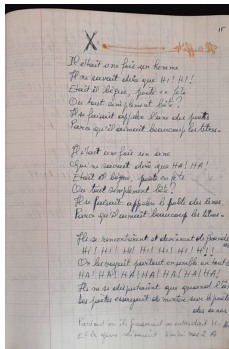 15
Il était une fois un homme
Il ne savait dire que Hi! Hi!
Etait il bègue, poète en fête
Ou tout simplement bête?
Il se faisait appeler l'ane des poètes
Parce qu'il aimait beaucoup les titres.
Il était une fois un ane
Qui ne savait dire que HA! HA!
Etait il bègue, poète en fête
Ou tout simplement bête?
Il se faisait appeler le poète des anes
Parce qu'il aimait beaucoup les titres.
Ils se rencontrèrent et devinrent de grands
Hi! Hi! Hi! Hi! Hi! Hi!
On les voyait partout ensemble, en tout
HA! HA! HA! HA! HA! HA! HA!
Ils ne se disputaient que quand l'
des anes
Partout où ils passaient on entendait
Et le